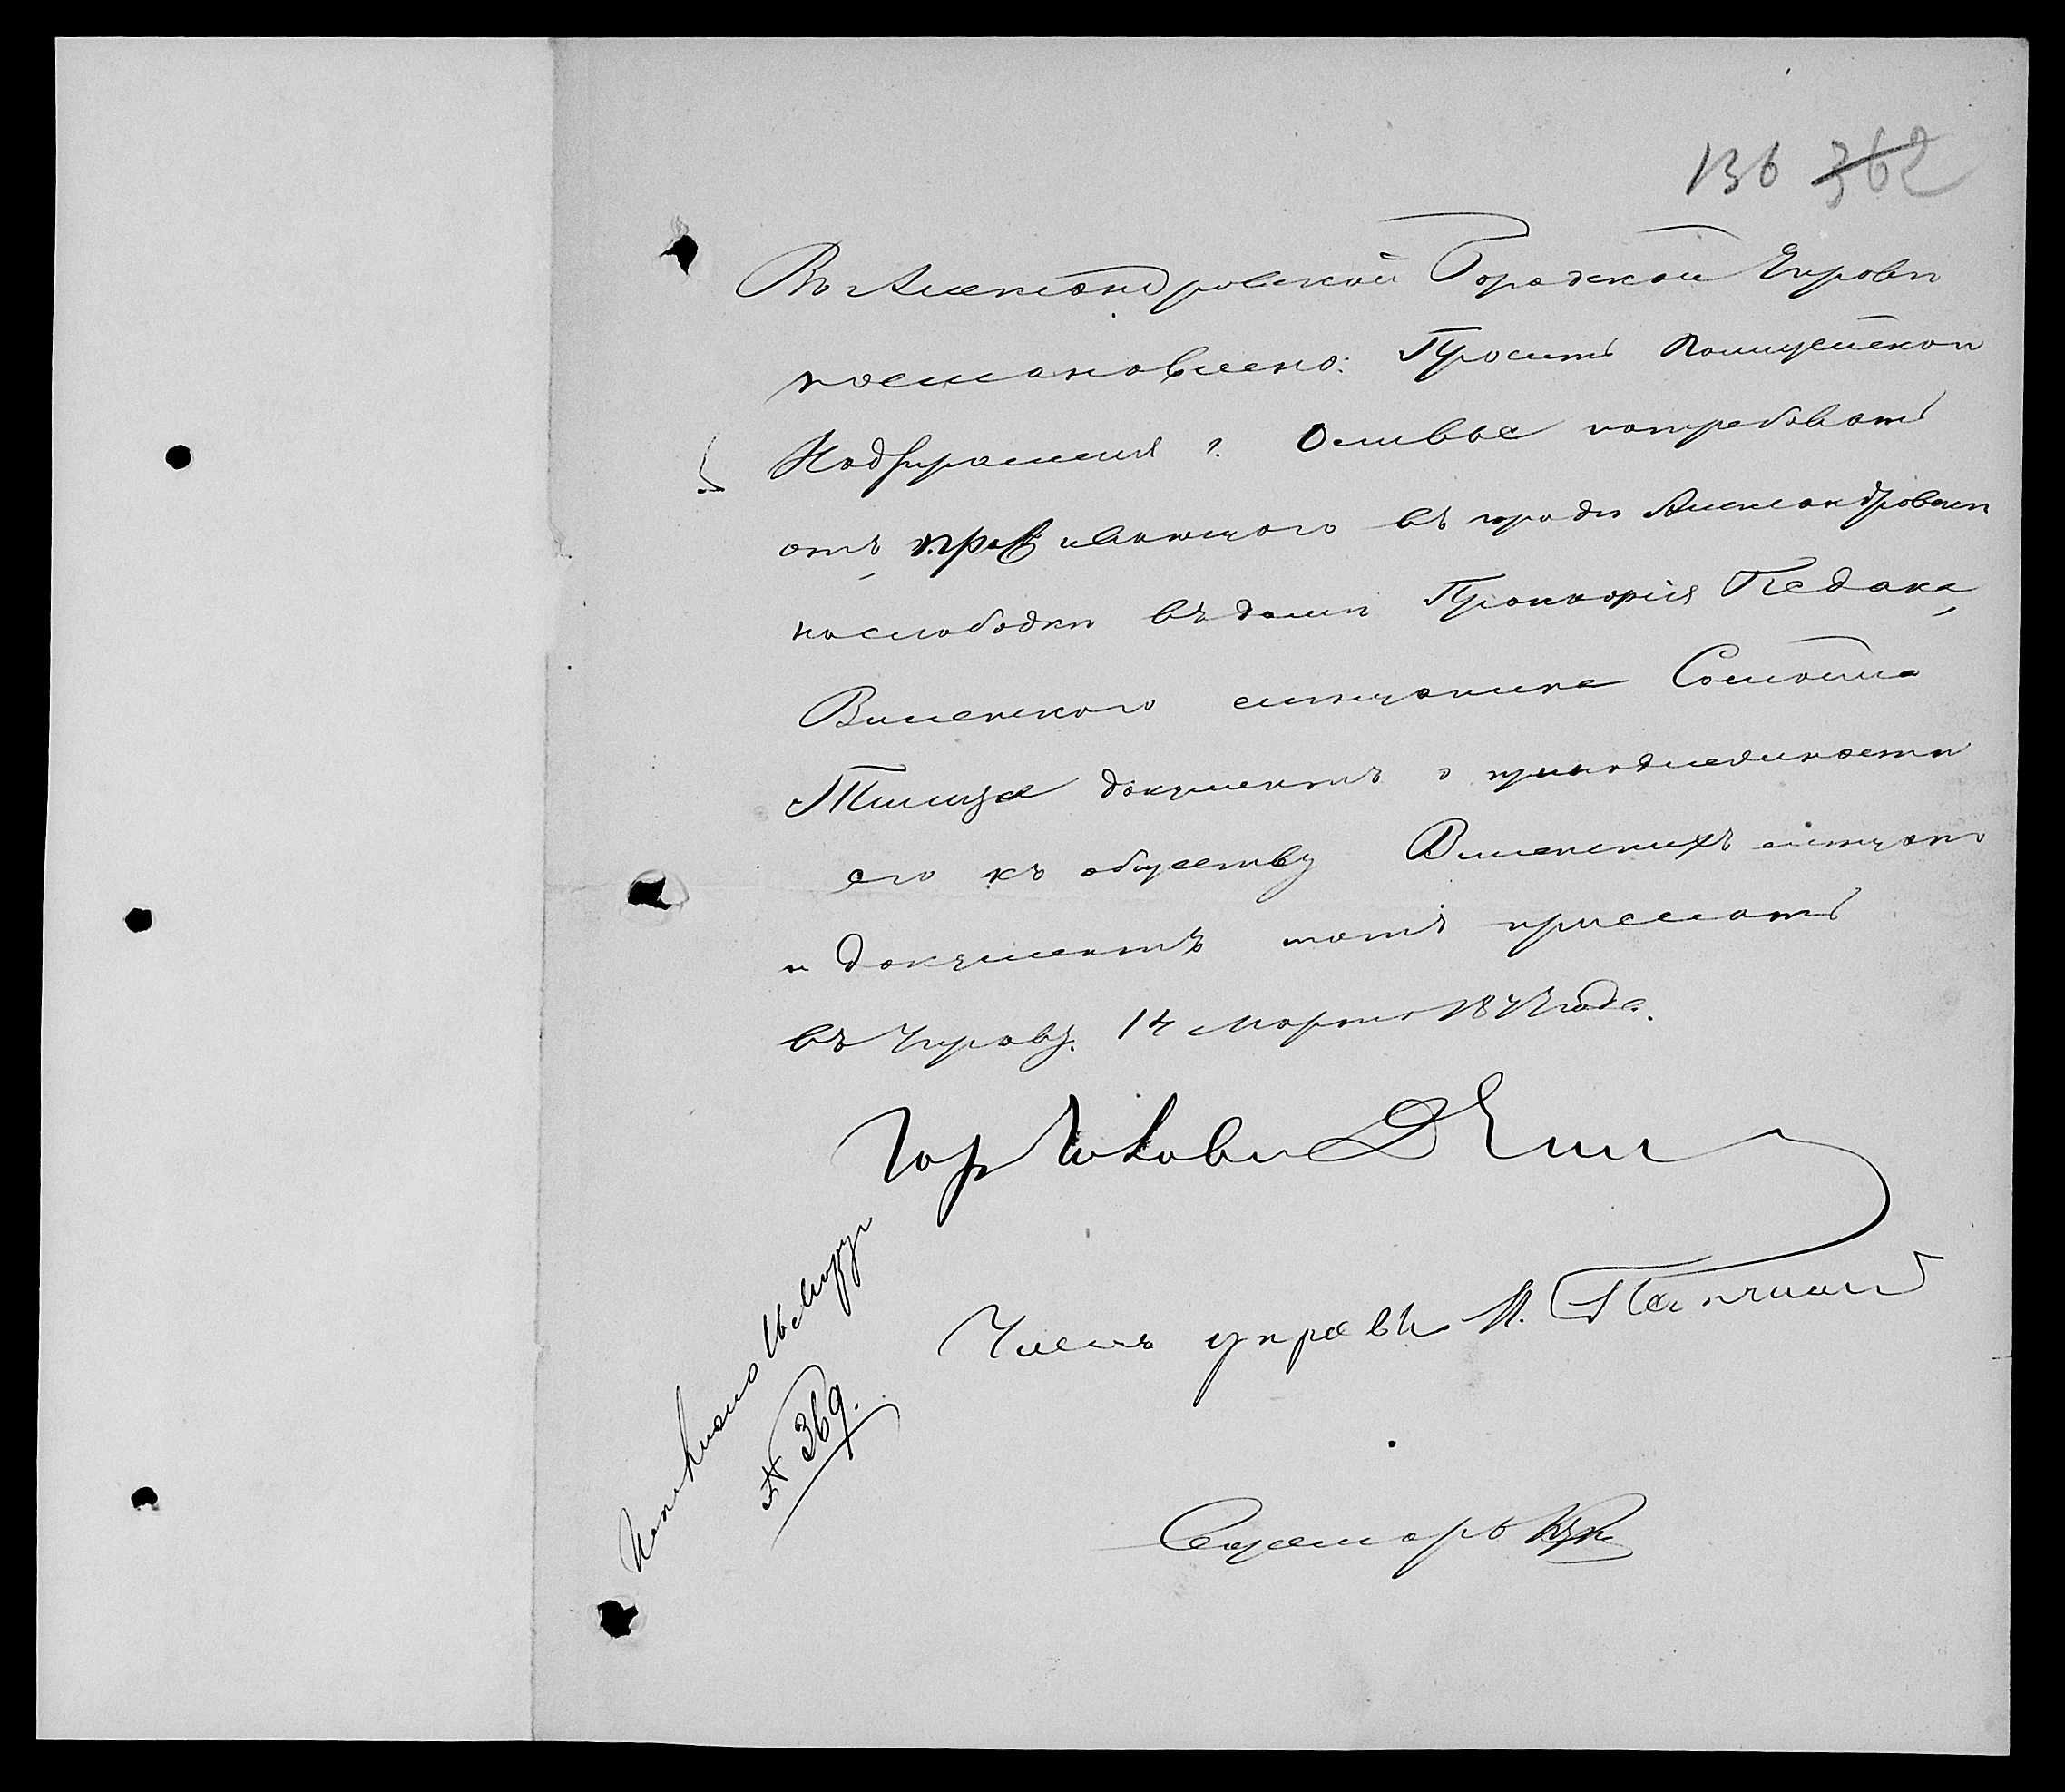 136 362
Въ Александровской Городской Управѣ
постановлено: Просить Полицейскаго
Надзирателя г. Оливье потребовать
отъ проживающаго въ городѣ Александровскѣ
на слободкѣ въ домѣ Прокофія Педака,
Виленскаго мѣщанина
документъ о принадлежности
его къ обществу Виленскихъ мѣщанъ
и документъ тотъ прислать
въ Управу. 14 Марта 187 года.
Гор Голова
Членъ управы М.
Секретарь
Исполнено
№ 369.